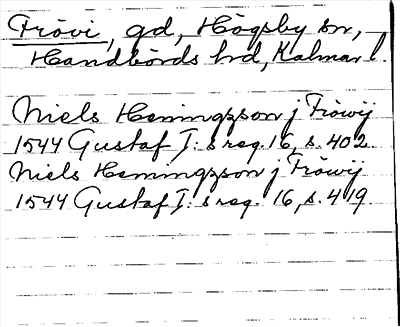 Frövi, gd, Högsby sn,
Handbörds hd, Kalmar l.
Niels Hemingzson j Fröwij
1544 Gustaf I: s reg. 16, s. 402.
Niels Hemmingzson j Fröwij
1544 Gustaf I: s reg. 16, s. 419.